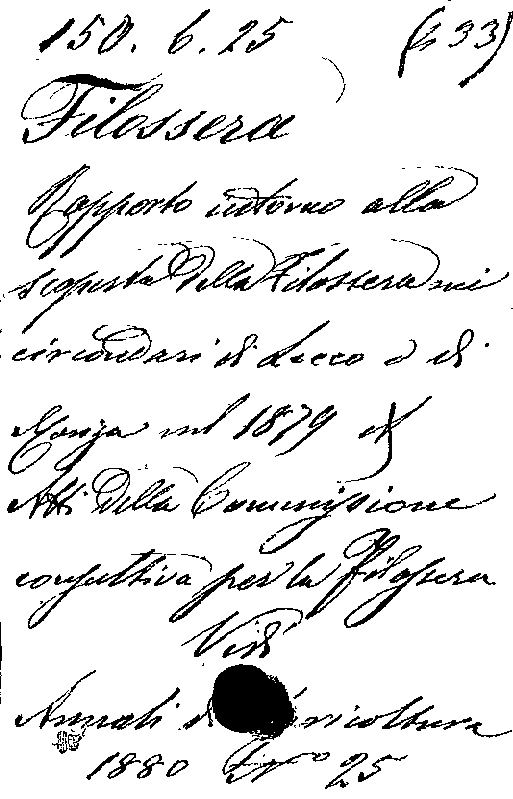 150. 6. 25 (433)
Filossera
Rapporto intorno alla
scoperta della Filossera nei
circondari di Lecco e di
Monza nel 1879 ed
Atti della Commissione
consultiva per la Filossera
Vedi
Annali di Agricoltura
1880 N.º 25